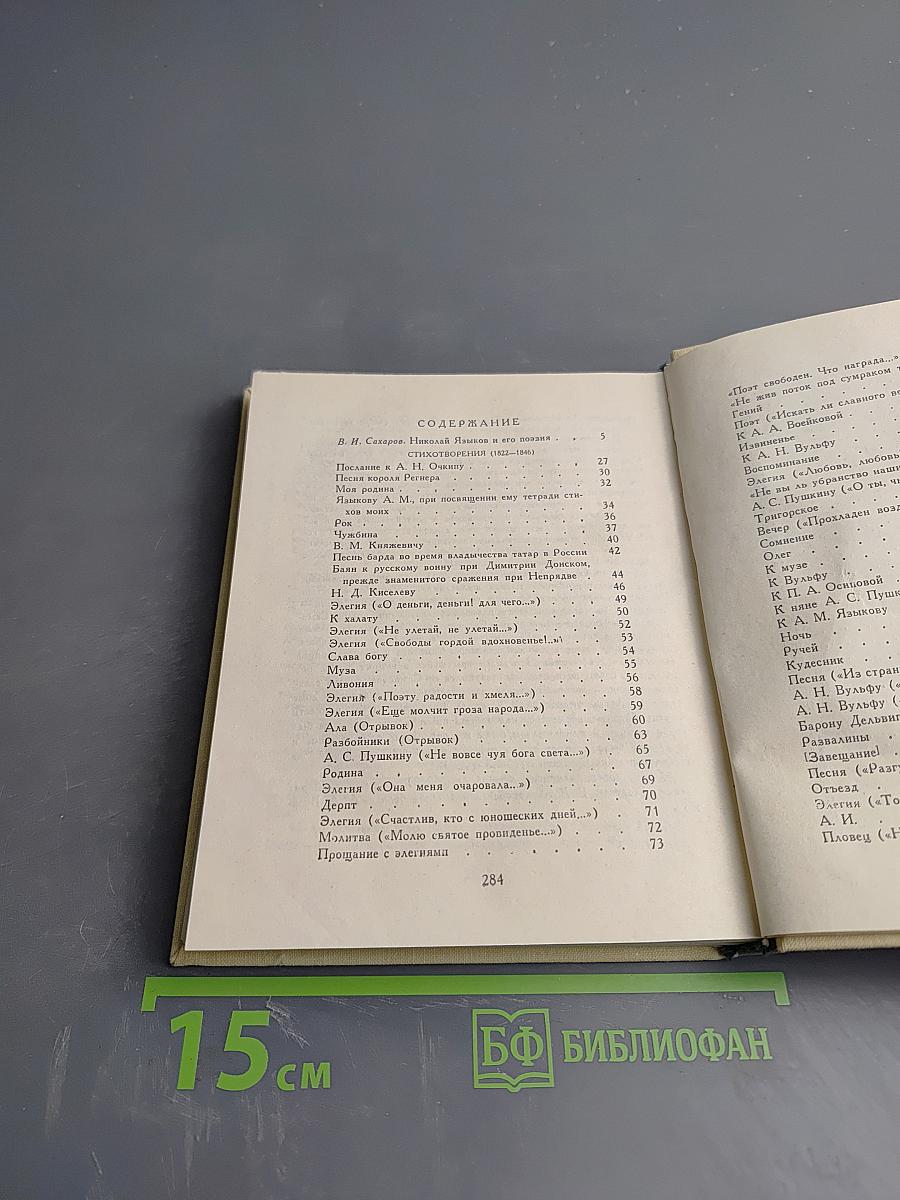 СОДЕРЖАНИЕ
В. И. Сахаров. Николай Языков и его поэзия . . 5
СТИХОТВОРЕНИЯ (1822—1846)
Послание к А. Н. Очкину . . . . . . 27
Песня короля Регнера . . . . . . . 30
Моя родина . . . . . . . . . 32
Языкову А. М., при посвящении ему тетради сти-
хов моих . . . . . . . . . 34
Рок . . . . . . . . . . . 36
Чужбина . . . . . . . . . . 37
В. М. Княжевичу . . . . . . . . 40
Песнь барда во время владычества татар в России 42
Баян к русскому воину при Димитрии Донском,
прежде знаменитого сражения при Непрядве . 44
Н. Д. Киселеву . . . . . . . . 46
Элегия («О деньги, деньги! для чего...») . . . 49
К халату . . . . . . . . . . 50
Элегия («Не улетай, не улетай...») . . . . 52
Элегия («Свободы гордой вдохновенье!..») . . . 53
Слава богу . . . . . . . . . 54
Муза . . . . . . . . . . 55
Ливония . . . . . . . . . . 56
Элегия («Поэту радости и хмеля...») . . . . 58
Элегия («Еще молчит гроза народа...») . . . 59
Ала (Отрывок) . . . . . . . . 60
Разбойники (Отрывок) . . . . . . 63
А. С. Пушкину («Не вовсе чуя бога света...») . . 65
Родина . . . . . . . . . . 67
Элегия («Она меня очаровала...») . . . . 69
Дерпт . . . . . . . . . . 70
Элегия («Счастлив, кто с юношеских дней...») . 71
Молитва («Молю святое провиденье...») . . . 72
Прощание с элегиями . . . . . . . 73
284
«Поэт свободен. Что награда...»
«Не жив поток под сумраком
Гений
Поэт («Искать ли славного
К А. А. Воейковой
Извиненье
К А. Н. Вульфу
Воспоминание
Элегия («Любовь, любовь
«Не вы ль убранство наши
А. С. Пушкину («О ты,
Тригорское
Вечер («Прохладен
Сомнение
Олег
К музе
К Вульфу
К П. А. Осиповой
К няне А. С.
К А. М. Языкову
Ночь
Ручей
Кудесник
Песня («Из
А. Н. Вульфу («
А. Н. Вульфу («
Барону
Развалины
[Завещание]
Песня («
Отъезд
Элегия («
А. И.
Пловец («
15 см
БФ БИБЛИОФАН